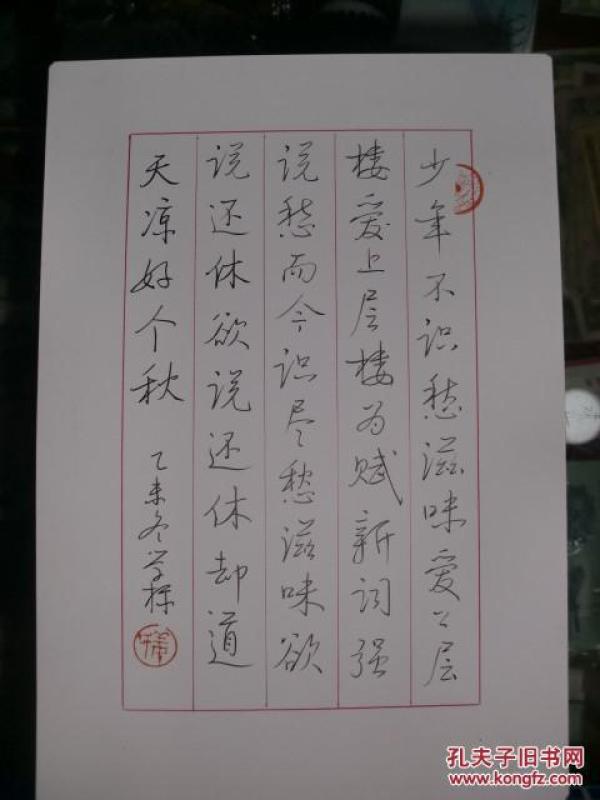 少年不识愁滋味爱上层
楼爱上层楼为赋新词强
说愁而今识尽愁滋味欲
说还休欲说还休却道
天凉好个秋
乙未冬学梓
孔夫子旧书网
www.kongfz.com